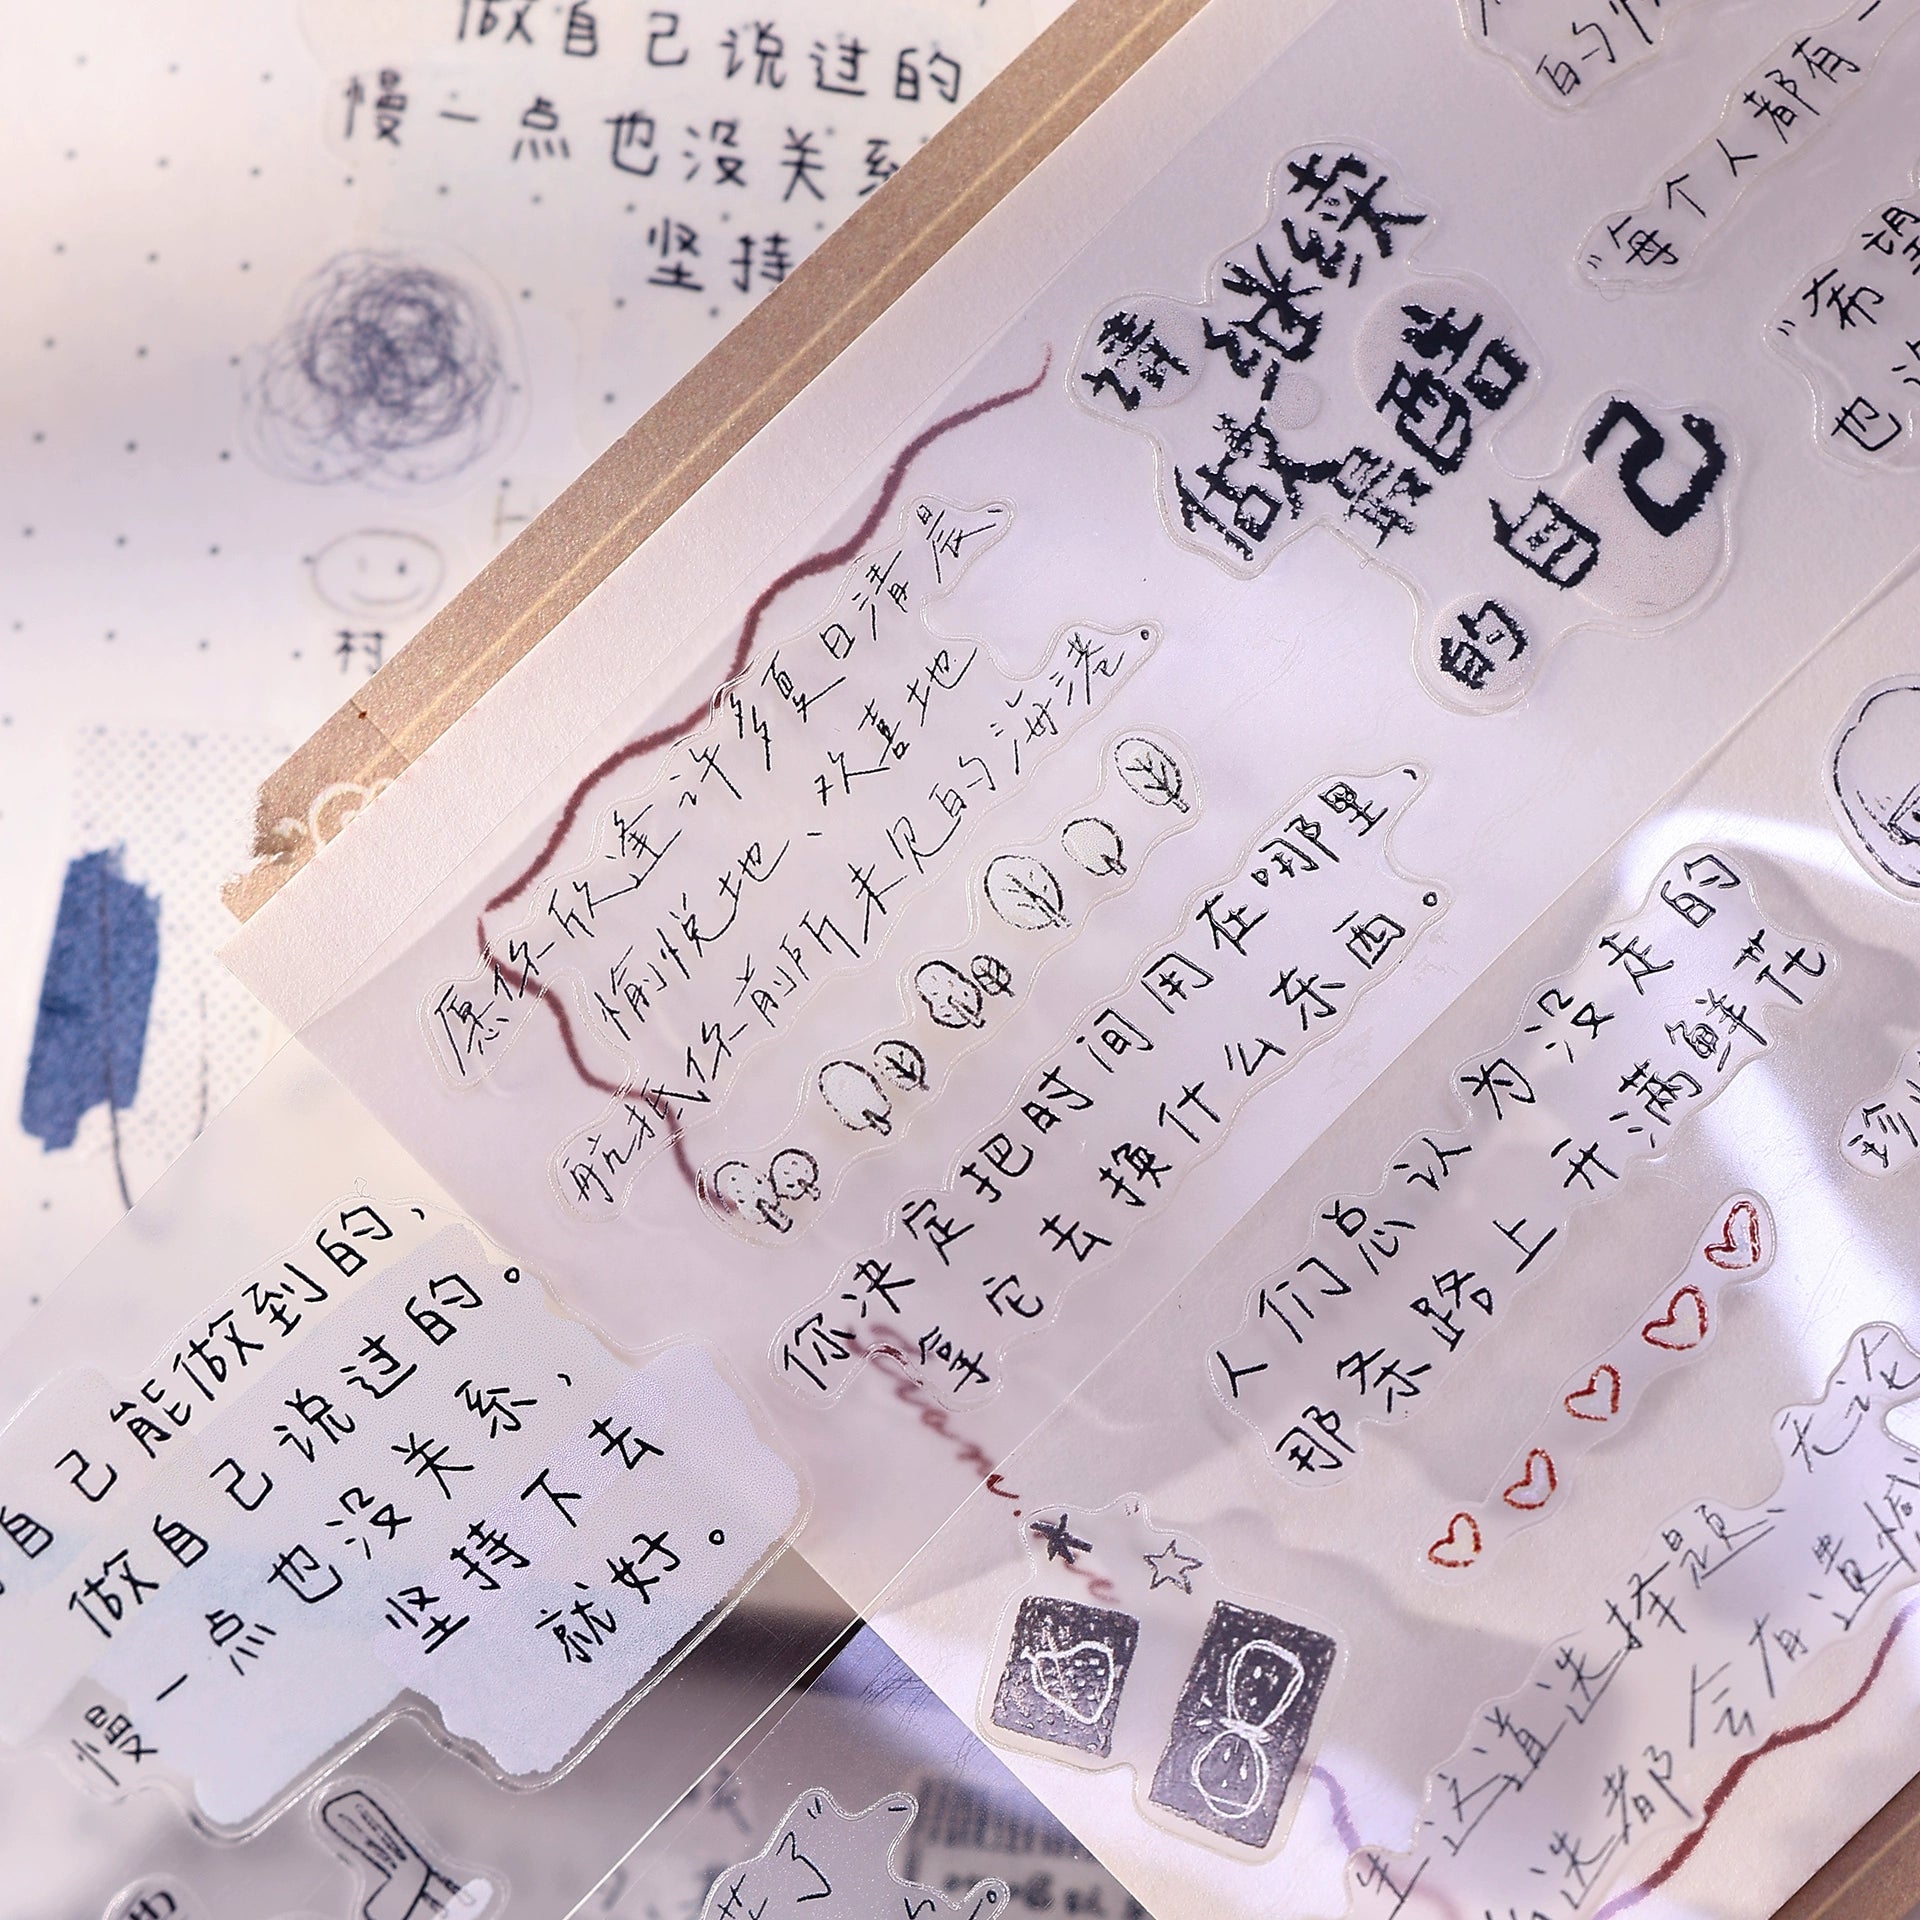 做自己说过的
慢一点也没关系
坚持
村
的
"每个人都有一
"希望
也
请继续
做最酷
的自己
愿你欣逢许多夏日清晨,
愉悦地、欢喜地
航抵你前所未见的海港。
你决定把时间用在哪里,
拿它去换什么东西。
人们总认为没走的
那条路上开满鲜花
珍
无论
生这道选择题、
选都会有遗憾
自己能做到的,
做自己说过的。
慢一点也没关系,
坚持下去
就好。
了"